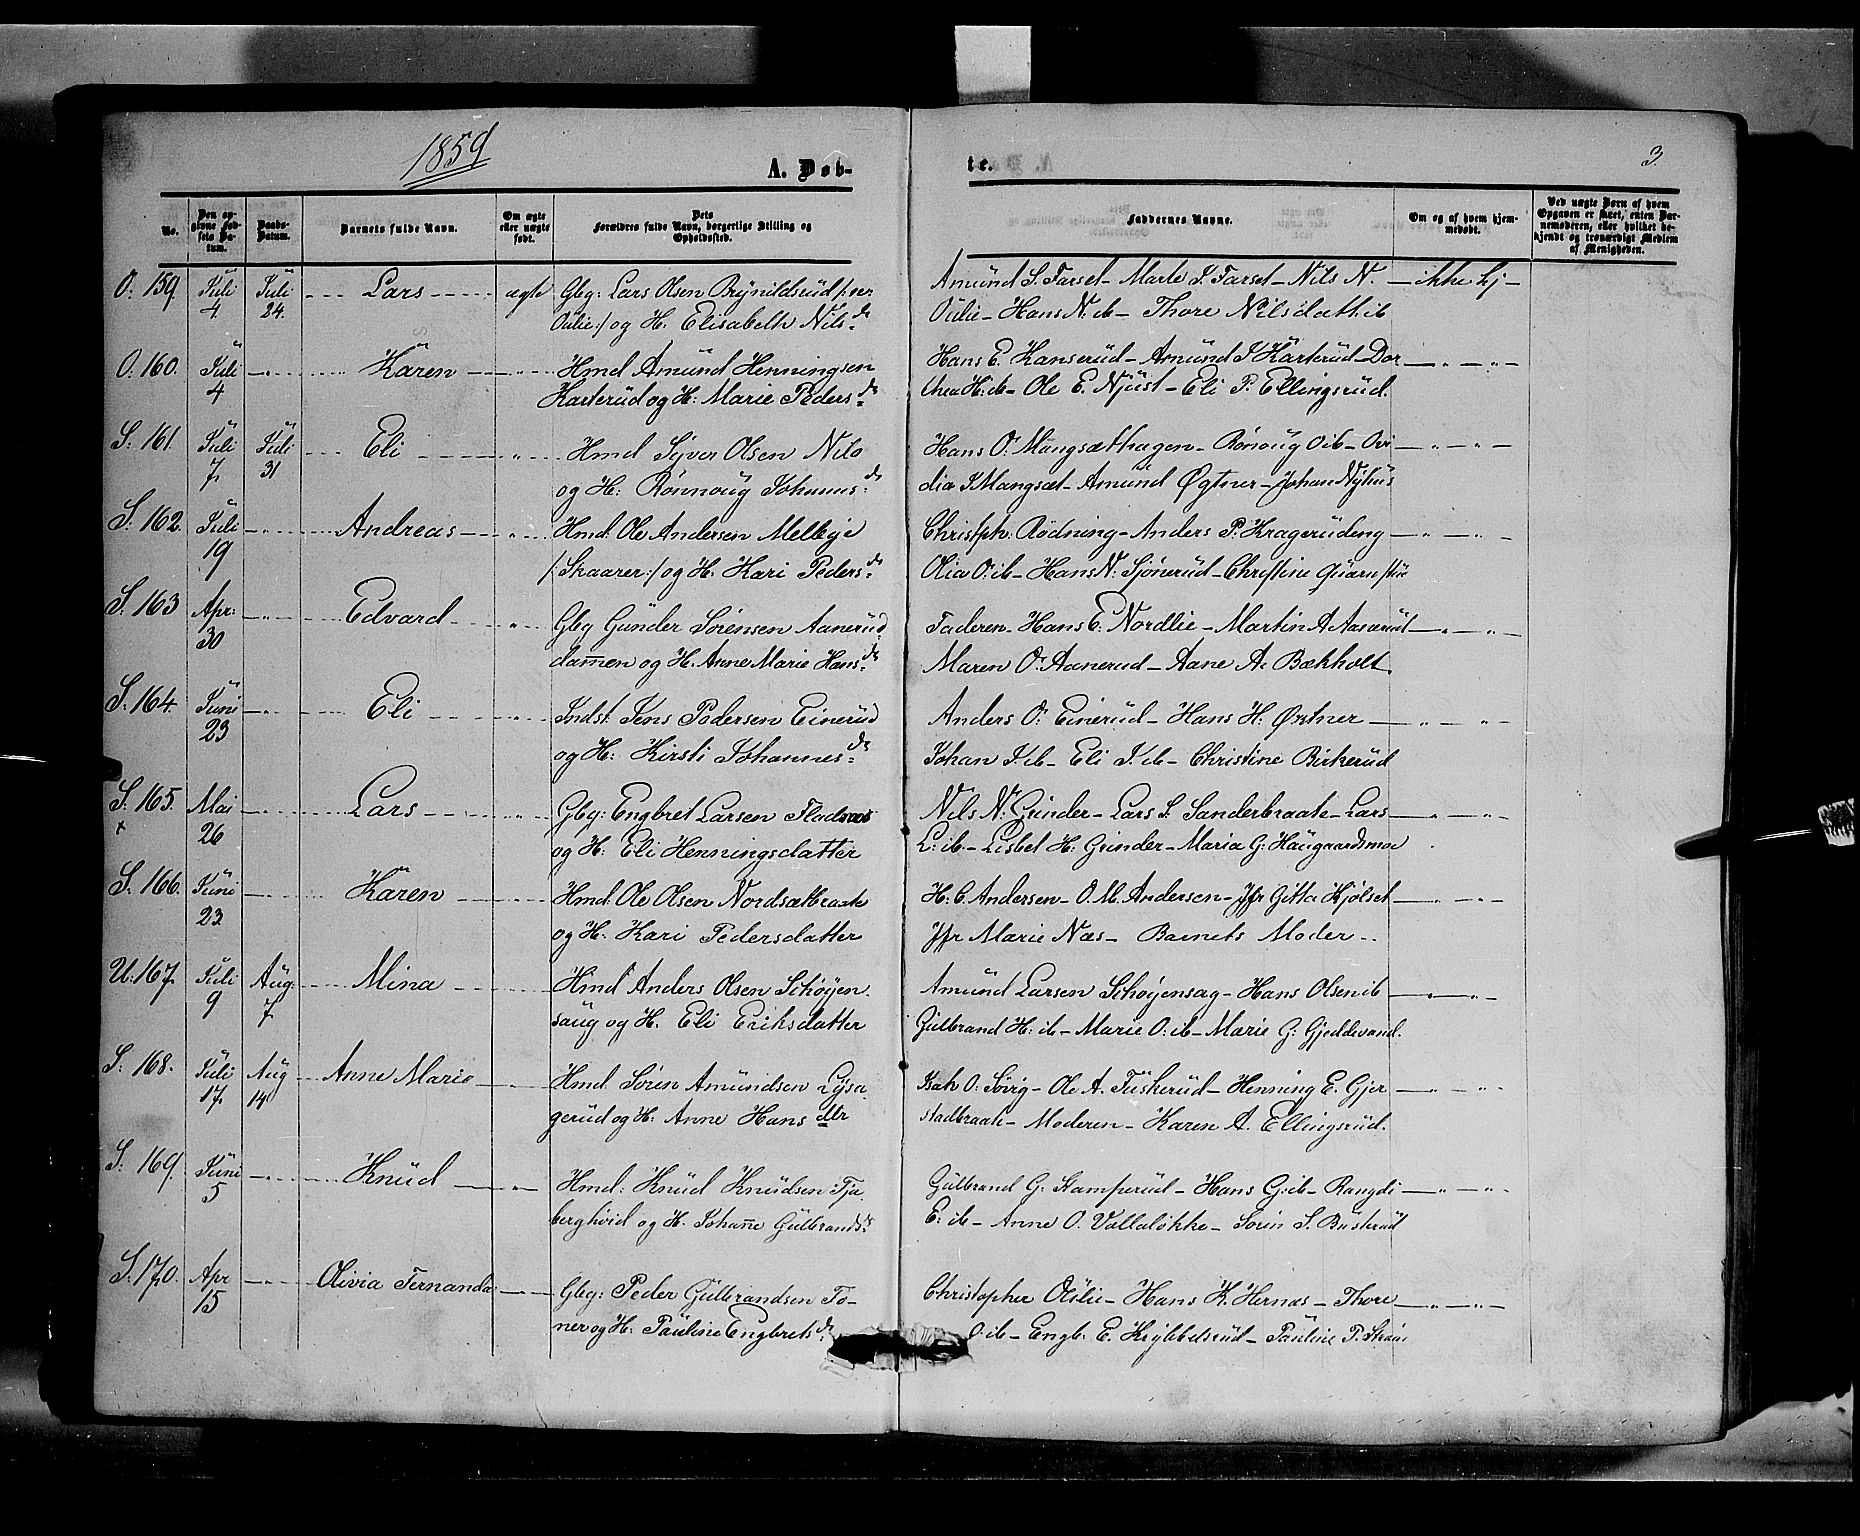 1859
A. Døb-
te.
3.
No.
Den opgivne Fødsels Datum.
Daabs-Datum.
Barnets fulde Navn.
Om ægte eller uægte født.
Dets Forældres fulde Navn, borgerlige Stilling og Opholdssted.
Faddernes Navne.
Om og af hvem hjemmedøbt.
Ved uægte Børn af hvem Opgaven er skeet, enten Barnemoderen, eller hvilket bekjendt og troværdigt Medlem af Menigheden.
O. 159. Juli 4 Juli 24. Lars ægte Gbg: Lars Olsen Brynildsrud /:nr
Oulie:/ og H. Elisabeth Nilsdr
Amund S. Farset - Marte S. Farset - Nils N. - ikke hj -
Oulie - Hans N. ib - Thore Nilsdatt. ib
O. 160. Juli 4 - " - Karen - " - Hmd Amund Henningsen
Karterud og H: Marie Pedersdr
Hans E. Kanserud - Amund S Karterud - Dor - " - " -
thea H: ib - Ole E. Njust - Eli P. Ellingsrud.
S: 161. Juli 7. Juli 31 Eli " - Hmd Syver Olsen Nilo
og H: Rønnoug Johannsdr
Hans O. Mangsæthagen - Rønoug O ib - Ovi - " - " -
dia J Mangsæt - Amund Øgtner - Johan Nyhus
S: 162. Juli 19 - " - Andreas - " - Hmd. Ole Andersen Melleje
/: Skaarer:/ og H. Kari Pedersdr
Christph: Rødning - Anders P. Kragerudeng - " - " -
Olia O: ib - Hans N: Sjønerud - Christine Quærnstue
S. 163 Apr: 30 - " - Edvard - " - Gbg Gunder Sørensen Aanerud
dammen og H. Anne Marie Hansdr
Faderen - Hans E. Nordlie - Martin A Aaserud - " - " -
Maren O. Aanerud - Aane A. Bækholt.
S. 164. Juni 23 - " - Eli - " - Indst. Jens Pedersen Einerud
og H: Kirsti Johannesdr
Anders O. Einerud - Hans H. Øxtner - " - " -
Johan J. ib - Eli J. ib - Christine Birkerud
S. 165. Mai 26 - " - Lars - " - Gbg: Engbret Larsen Fladnæs
og H: Eli Henningsdatter
Nils N. Grinder - Lars S. Sanderbraate - Lars - " - " -
L: ib - Lisbet H. Grinder - Maria G. Haugaardsmoe
S. 166. Juni 23 - " - Karen - " - Hmd. Ole Olsen Nordsætbraate
og H. Kari Pedersdatter
H. C. Andersen - O. M. Andersen - Jfr Gitta Hjølset - " - " -
Jfr Marie Næs - Barnets Moder -
U. 167. Juli 9 Aug. 7. Mina Hmd Anders Olsen Schøyen
saug og H. Eli Eriksdatter
Amund Larsen Schøyensag - Hans Olsen ib - " - " -
Gulbrand H: ib - Marie O: ib - Marie G: Gjeddevand.
S. 168. Juli 17. Aug 14 Anne Marie - " - Hmd. Søren Amundsen Lysa
gerud og H. Anne Hans dtr
Isak O. Søvig - Ole A. Fuskerud - Henning E. Gjer - " - " -
stadbraate - Moderen - Karen A. Ellingsrud.
S. 169. Juni 5 - " - Knud - " - Hmd: Knud Knudsen Tja
berghvid og H. Johanne Gulbrandsdr
Gulbrand G. Stamperud - Hans G: ib - Rangdi - " - " -
E: ib - Anne O. Valleløkke - Soren S. Busterud
S. 170. Apr 15 - " - Olivia Fernanda - Gbg: Peder Gulbrandsen To-
ner og H: Pauline Engbretsdr
Christopher Oulie - Hans K. Hernæs - Thore - " - " -
O: ib - Engb. E. Krybbelsrud - Pauline P.